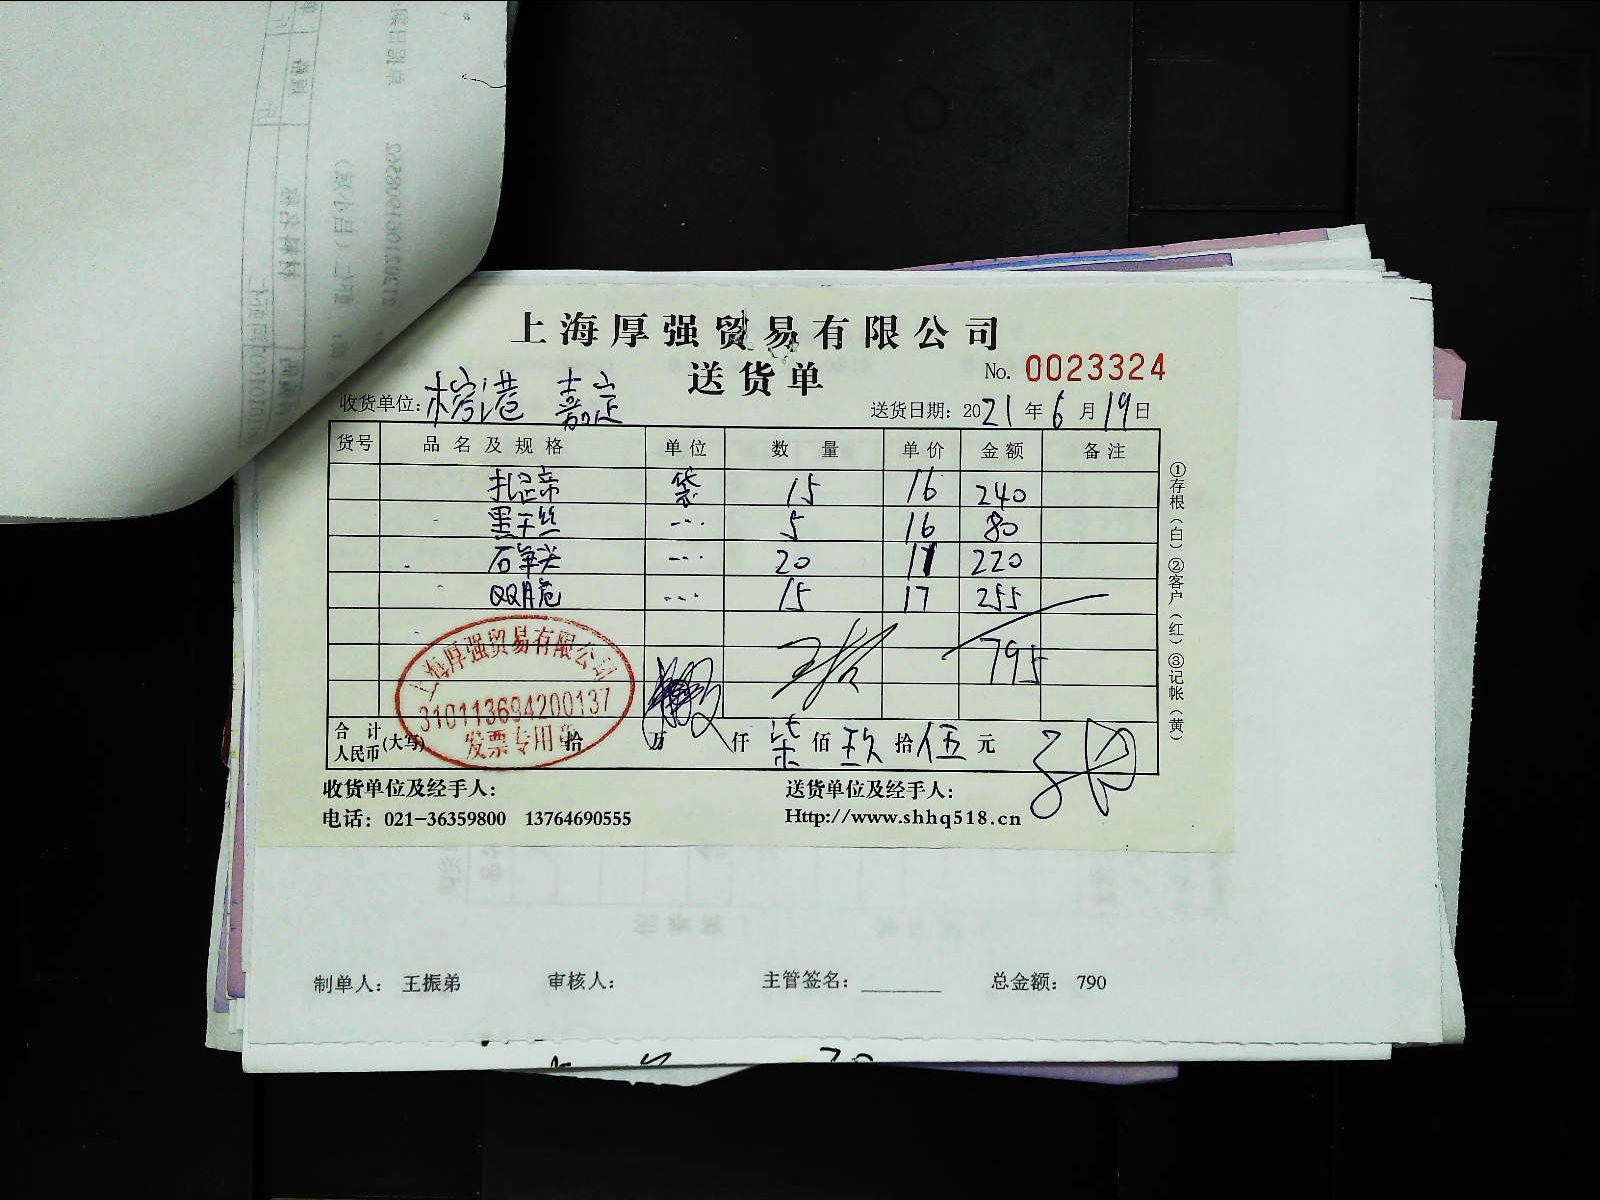 上海厚强贸易有限公司
送货单
No. 0023324
收货单位: 榕港 嘉定
送货日期: 2021年6月19日
货号 品名及规格 单位 数量 单价 金额 备注
扎足帝 袋 15 16 240
黑干丝 --- 5 16 80
石笋尖 --- 20 11 220
QQ肠 --- 15 17 255
795
上海厚强贸易有限公司
310113694200137
发票专用章
合计人民币(大写) 拾 万 仟 柒 佰 玖 拾 伍 元
①存根(白)②客户(红)③记帐(黄)
收货单位及经手人: 送货单位及经手人:
电话: 021-36359800 13764690555 Http://www.shhq518.cn
制单人: 王振弟 审核人: 主管签名: ______ 总金额: 790